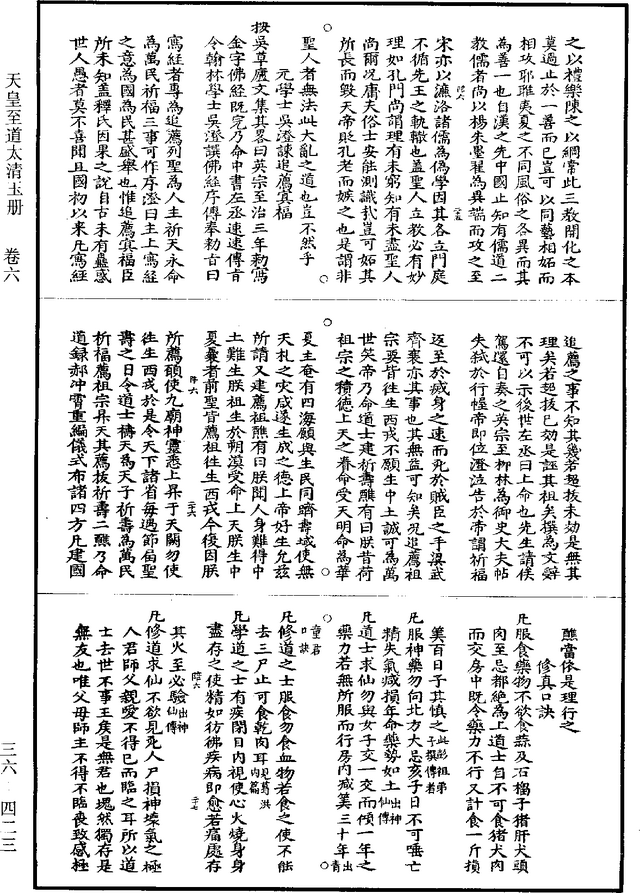 天皇至道太清玉册 卷六
三六—四二三
之以禮樂陳之以綱常此三教開化之本
莫過止於一善而已豈可以同藝相妬而
相攻耶雖夷夏之不同風俗之各異而其
為善一也自漢之先中國止知有儒道二
教儒者尚以楊朱墨翟為異端而攻之至
宋亦以濂洛諸儒為偽學因其各立門庭
不循先王之軌轍也蓋聖人立教必有妙
理如孔門尚謂理有未窮知有未盡聖人
尚爾况庸夫俗士安能測識哉豈可妬其
所長而毀天帝貶孔老而嫉之也是謂非
聖人者無法此大亂之道也豈不然乎
元學士吳澄諫追薦冥福
按吳草廬文集其畧曰英宗至治三年勑寫
金字佛經既完乃命中書左丞速速傳旨
令翰林學士吳澄譔佛經序傳奉勑旨曰
寫經者專為追薦列聖為人主祈天永命
為萬民祈福三事可作序澄曰主上寫經
之意為國為民甚盛舉也惟追薦冥福臣
所未知蓋釋氏因果之說自古未有蠱惑
世人愚者莫不喜聞且國初以來凡寫經
追薦之事不知其幾若超拔未効是無其
理矣若超拔已効是誣其祖矣撰為文辭
不可以示後世左丞曰上命也先生請俟
駕還自奏之英宗至柳林為御史大夫帖
失弑於行幄帝即位澄泣告於帝謂祈福
返至於滅身之速而死於賊臣之手梁武
齊襄亦其事也其無益可知矣况追薦祖
宗要皆往生西戎不願生中土誠可為萬
世笑帝乃命道士建祈壽醮有曰朕昔荷
祖宗之積德上天之眷命受天明命為華
夏主奄有四海願與生民同躋壽域使無
夭札之灾咸遂生成之德上帝好生允茲
所請又建薦祖醮有曰朕聞人身難得中
土難生朕祖生於朔漠受命上天朕生中
夏曩者前聖皆薦祖往生西戎今後因朕
所薦願使九廟神靈悉上昇于天闕勿使
徃生西戎於是令天下諸省每遇節屆聖
壽之日令道士禱天為天子祈壽為萬民
祈福薦祖宗昇天其薦拔祈壽二醮乃命
道録郝冲霄重編儀式布諸四方凡建國
醮當依是理行之
修真口訣
凡服食藥物不欲食蒜及石榴子猪肝犬頭
肉至忌都絶為上道士自不可食猪犬肉
而交房中既令藥力不行又計食一斤損
筭百日子其慎之此彭祖弟子撰傳者
凡服神藥勿向北方大忌亥子日不可唾亡
精失氣減損年命藥勢如土出神仙傳
凡道士求仙勿與女子交一交而傾一年之
藥力若無所服而行房内減筭三十年出青童君口訣
凡修道之士服食勿食血物若食之使不能
去三尸止可食乾肉耳見葛洪内篇
凡學道之士有疾閉目内視使心火燒身身
盡存之使精如彷彿疾病即愈若痛處存
其火至必驗出神仙傳
凡修道求仙不欲見死人尸損神壞氣之極
人君師父親愛不得已而臨之耳所以道
士去世不事王矦是無君也塊然獨存是
無友也唯父母師主不得不臨喪致感極